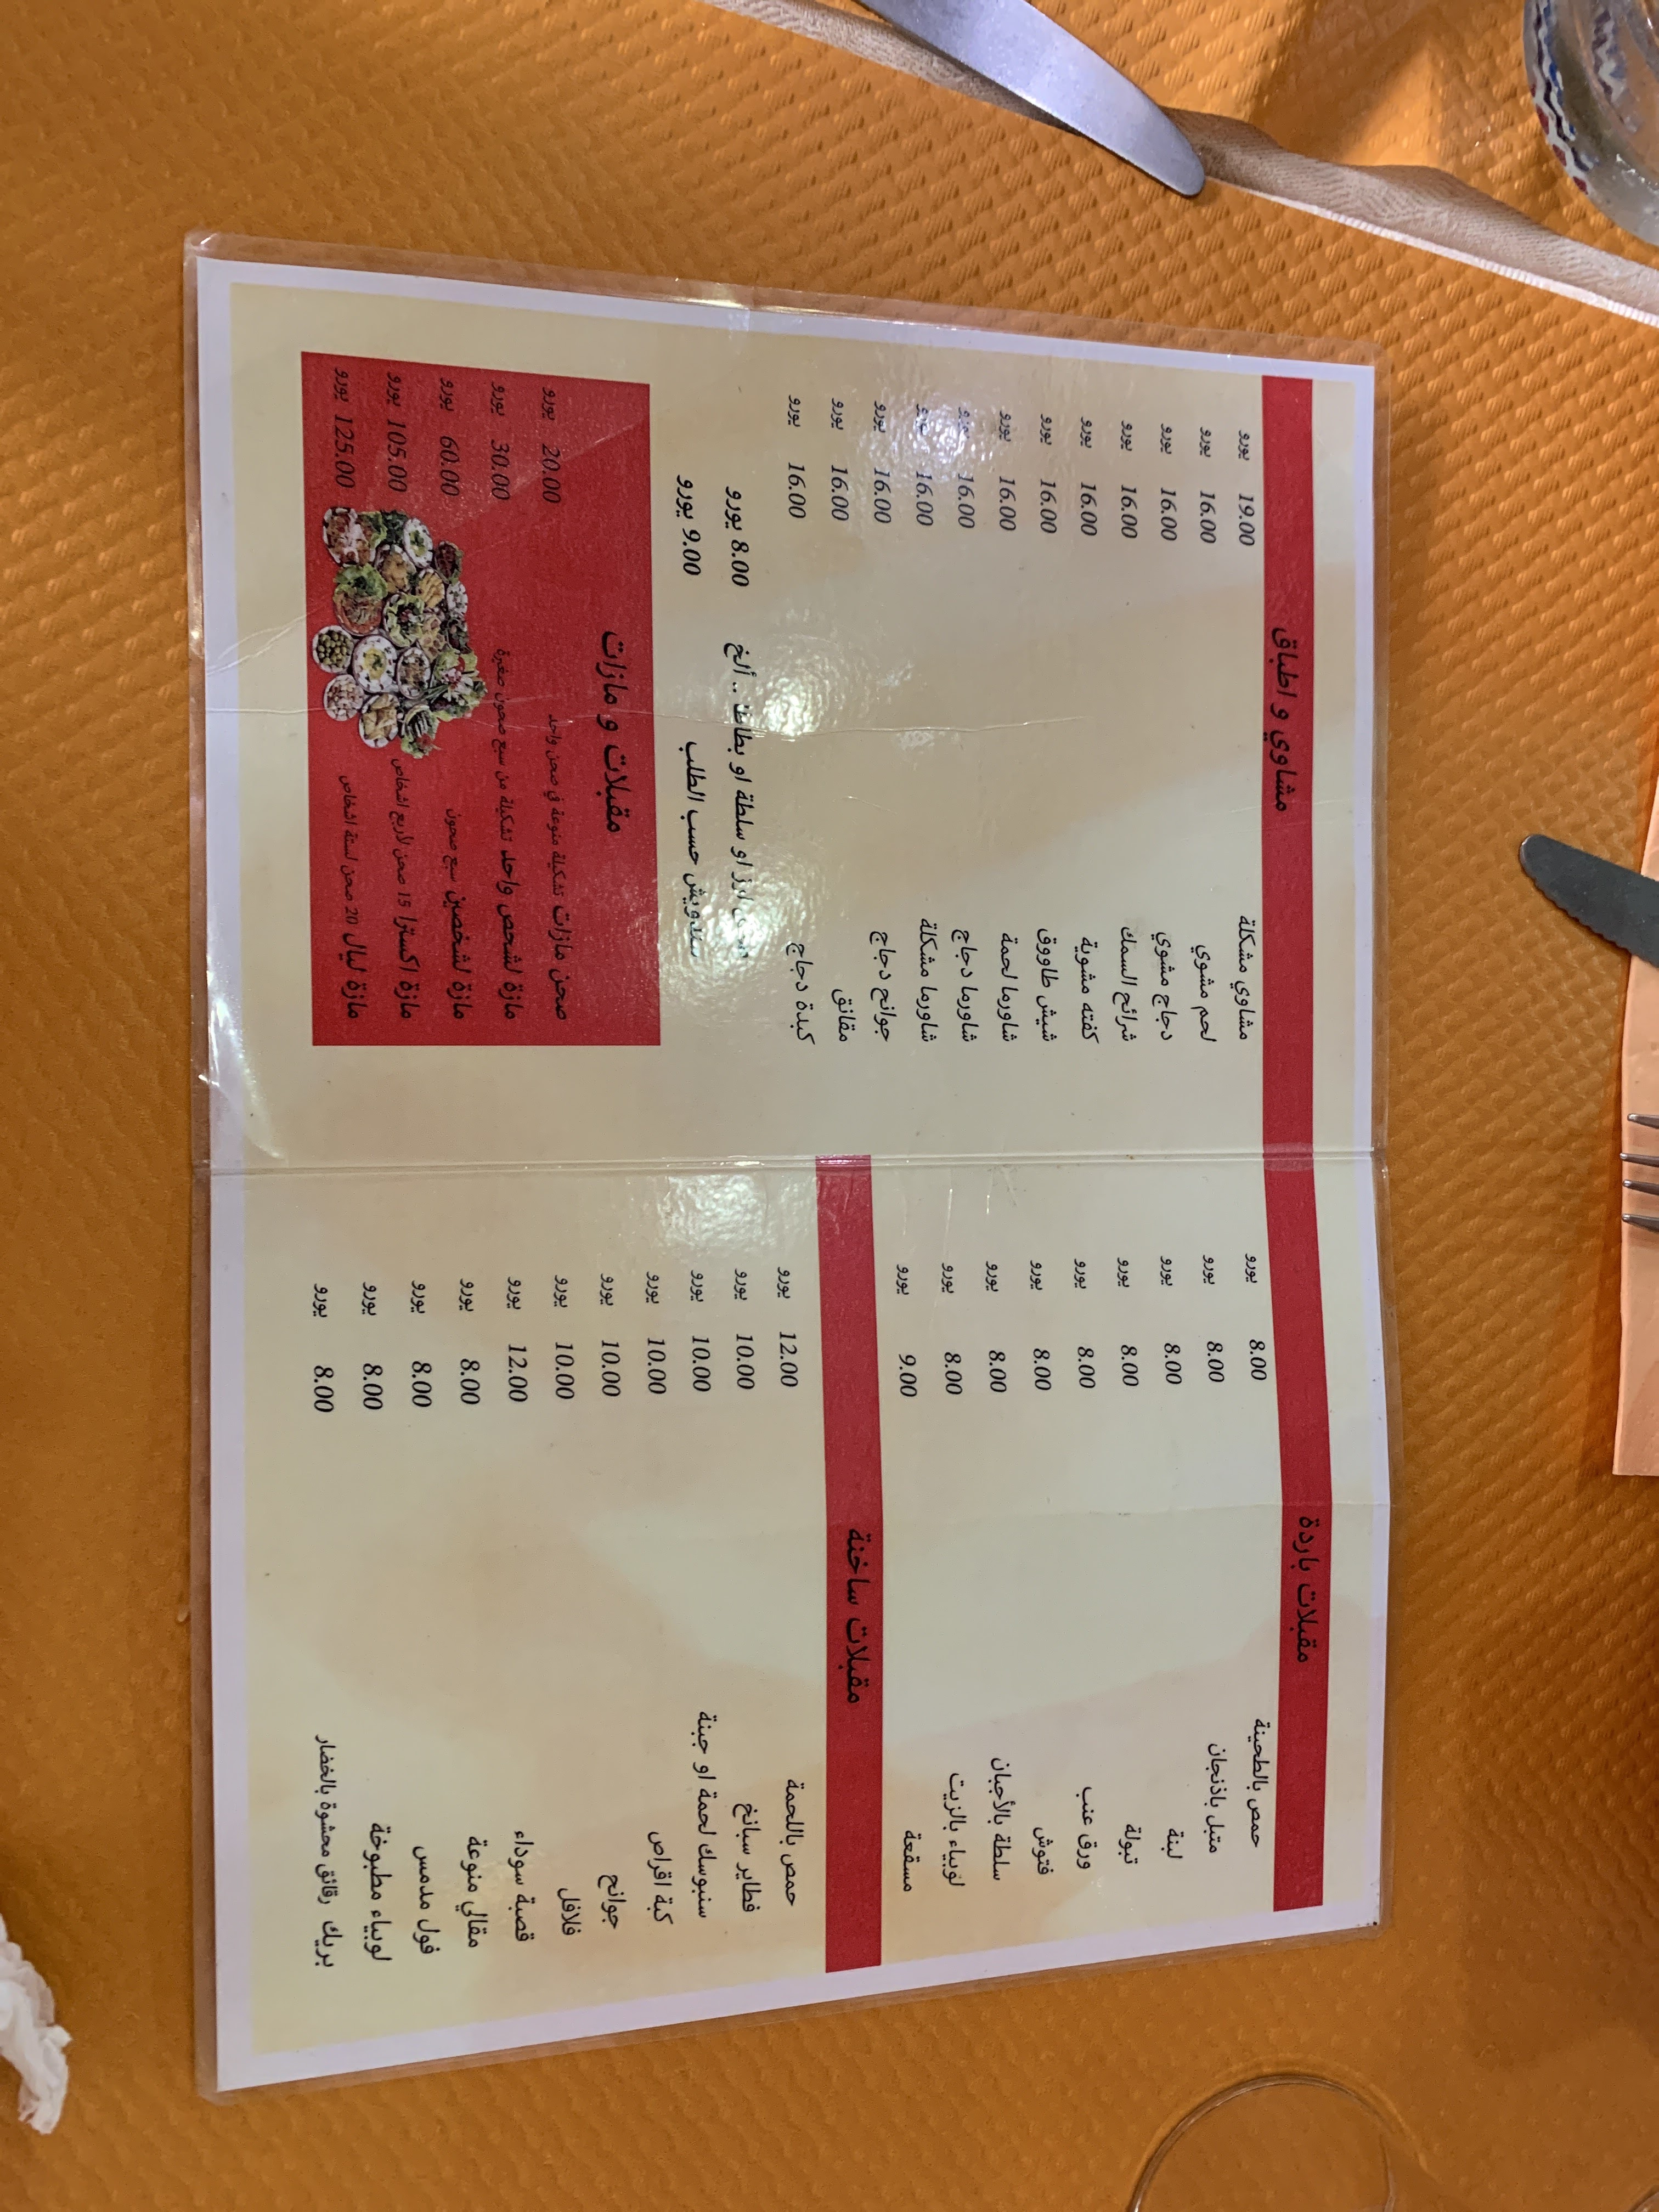 مقبلات باردة
حمص بالطحينة 8.00 يورو
متبل باذنجان 8.00 يورو
لبنة 8.00 يورو
تبولة 8.00 يورو
ورق عنب 8.00 يورو
فتوش 8.00 يورو
سلطة بالأجبان 8.00 يورو
لوبياء بالزيت 8.00 يورو
مسقعة 9.00 يورو
مقبلات ساخنة
حمص باللحمة 12.00 يورو
فطاير سبانخ 10.00 يورو
سنبوسك لحمة او جبنة 10.00 يورو
كبة اقراص 10.00 يورو
جوانح 10.00 يورو
فلافل 10.00 يورو
قصبة سوداء 12.00 يورو
مقالي منوعة 8.00 يورو
فول مدمس 8.00 يورو
لوبياء مطبوخة 8.00 يورو
بريك رقائق محشوة بالخضار 8.00 يورو
مشاوي و اطباق
مشاوي مشكلة 19.00 يورو
لحم مشوي 16.00 يورو
دجاج مشوي 16.00 يورو
شرائح السمك 16.00 يورو
كفته مشوية 16.00 يورو
شيش طاووق 16.00 يورو
شاورما لحمة 16.00 يورو
شاورما دجاج 16.00 يورو
شاورما مشكلة 16.00 يورو
جوانح دجاج 16.00 يورو
مقانق 16.00 يورو
كبدة دجاج 16.00 يورو
او سلطة او بطاطا .. ألخ 8.00 يورو
سندويش حسب الطلب 9.00 يورو
مقبلات و مازات
صحن مازات تشكيلة منوعة في صحن واحد 20.00 يورو
مازة لشخص واحد تشكيلة من سبع صحون صغيرة 30.00 يورو
مازة لشخصين سبع صحون 60.00 يورو
مازة اكسترا 15 صحن لأربع اشخاص 105.00 يورو
مازة ليال 20 صحن لستة اشخاص 125.00 يورو